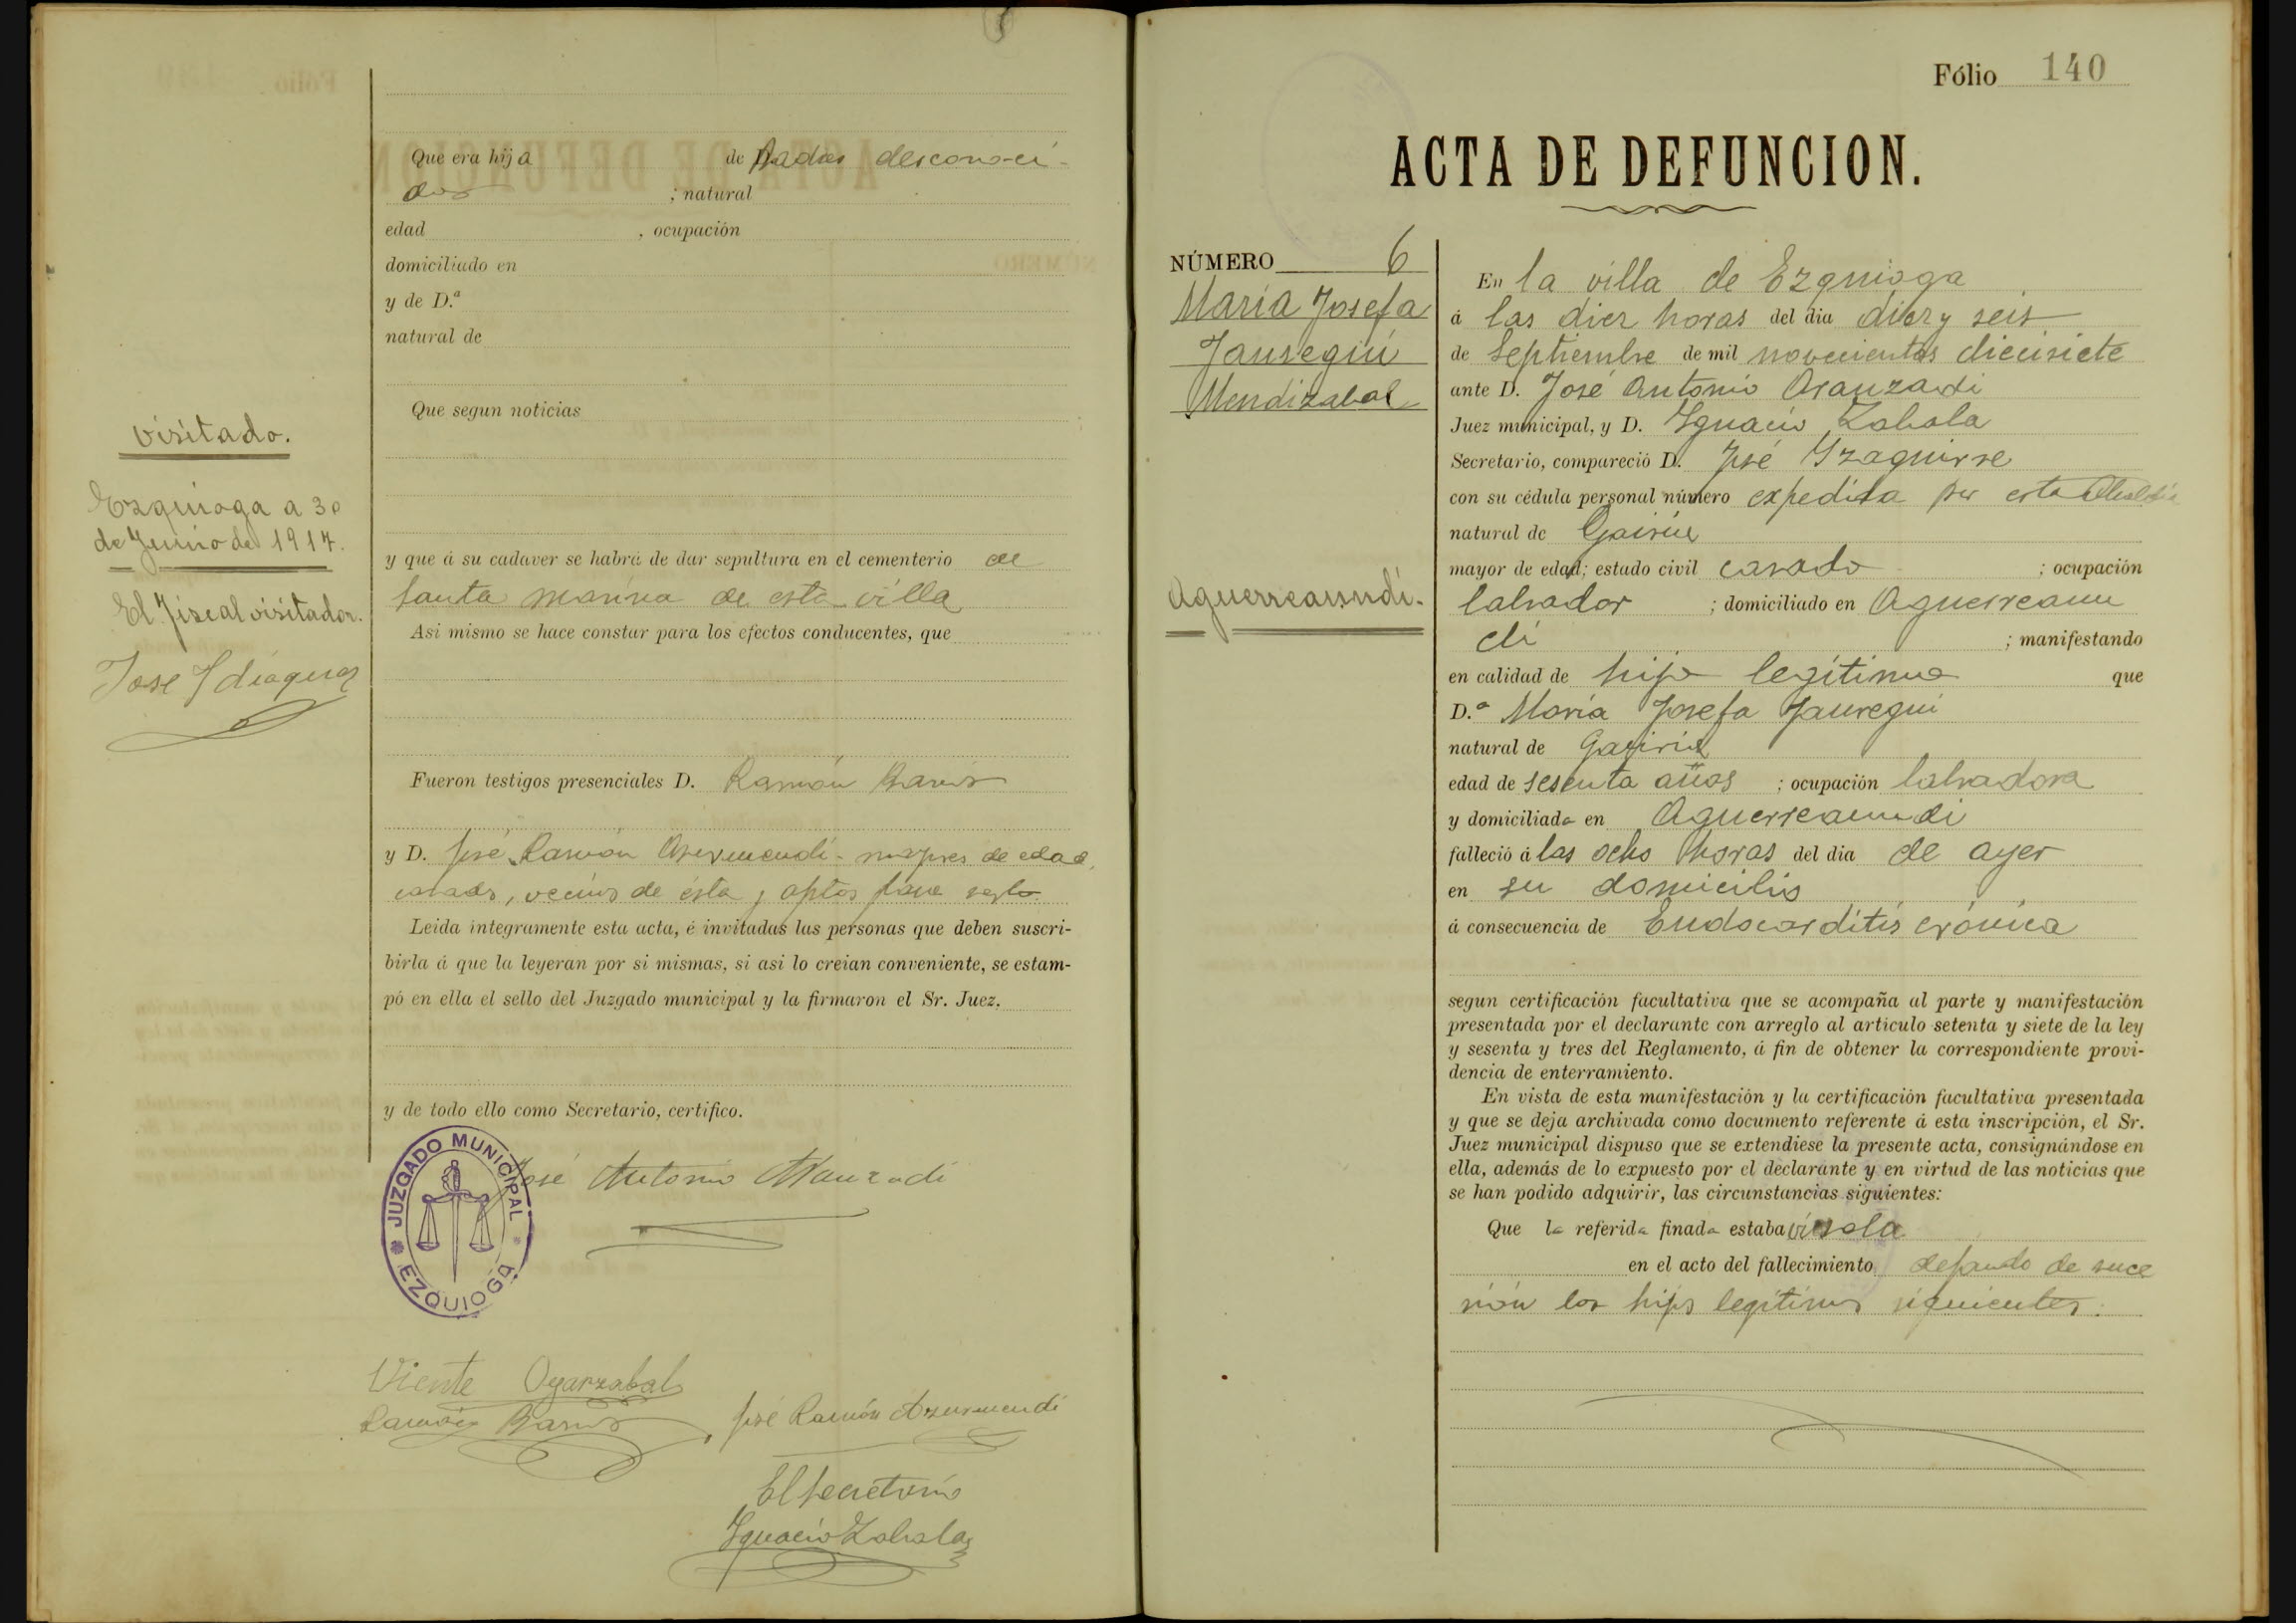 Que era hija de Padres desconoci-
dos ; natural
edad , ocupación
domiciliado en
y de D.ª
natural de
Que segun noticias
visitado.
Ezquioga a 30
de Junio de 1917.
El Fiscal visitador.
José Idiaquez
y que á su cadaver se habrá de dar sepultura en el cementerio de
Santa Marina de esta villa
Asi mismo se hace constar para los efectos conducentes, que
Fueron testigos presenciales D. Ramón
y D. José Ramón Azurmendi mayores de edad,
casados, vecinos de ésta y aptos para
Leida íntegramente esta acta, é invitadas las personas que deben suscri-
birla á que la leyeran por si mismas, si asi lo creian conveniente, se estam-
pó en ella el sello del Juzgado municipal y la firmaron el Sr. Juez.
y de todo ello como Secretario, certifico.
JUZGADO MUNICIPAL
EZQUIOGA
José Antonio Aranzadi
Viente Oyarzabal
Ramón
José Ramón Azurmendi
El Secretario
Ignacio Zabala
Fólio 140
ACTA DE DEFUNCION.
NÚMERO 6
María Josefa
Jauregui
Mendizabal
Aguerrearundi.
En la villa de Ezquioga
á las diez horas del dia diez y seis
de Septiembre de mil novecientos diecisiete
ante D. José Antonio Aranzadi
Juez municipal, y D. Ignacio Zabala
Secretario, compareció D. José Yzaguirre
con su cédula personal número expedida por esta Alcaldía
natural de Gaviria
mayor de edad; estado civil casado ; ocupación
labrador ; domiciliado en Aguerreaun
di ; manifestando
en calidad de hijo legítimo que
D.ª María Josefa Jauregui
natural de Gaviria
edad de sesenta años ; ocupación labradora
y domiciliada en Aguerreaundi
falleció á las ocho horas del dia de ayer
en su domicilio
á consecuencia de Endocarditis crónica
segun certificación facultativa que se acompaña al parte y manifestación
presentada por el declarante con arreglo al artículo setenta y siete de la ley
y sesenta y tres del Reglamento, á fin de obtener la correspondiente provi-
dencia de enterramiento.
En vista de esta manifestación y la certificación facultativa presentada
y que se deja archivada como documento referente á esta inscripción, el Sr.
Juez municipal dispuso que se extendiese la presente acta, consignándose en
ella, además de lo expuesto por el declarante y en virtud de las noticias que
se han podido adquirir, las circunstancias siguientes:
Que la referida finada estaba
en el acto del fallecimiento dejando de suce
sión los hijos legítimos siguientes.